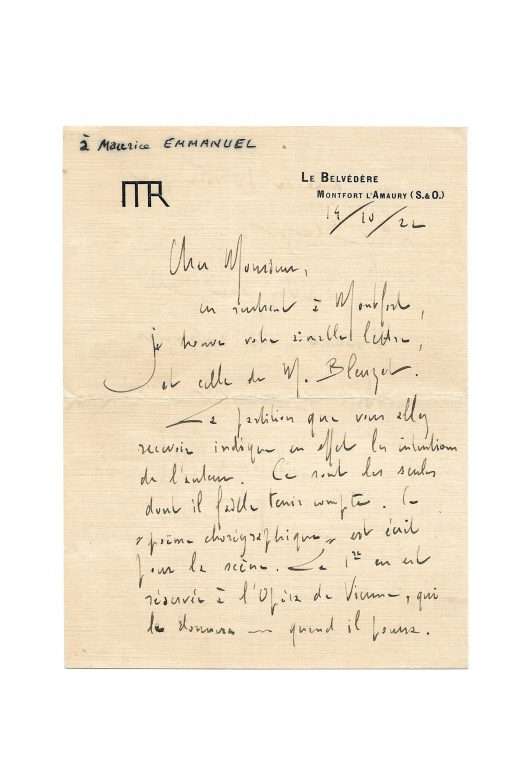 à Maurice EMMANUEL
MR
LE BELVÉDÈRE
MONTFORT L'AMAURY (S.&O.)
14/10/22
Cher Monsieur,
en rentrant à Montfort,
je trouve votre lettre,
et celle de M. Bleuzet.
La partition que vous allez
recevoir indique en effet les intentions
de l'auteur. Ce sont les seules
dont il faille tenir compte. Ce
"poème chorégraphique" est écrit
pour la scène. La 1re en est
réservée à l'Opéra de Vienne, qui
le donnera — quand il pourra.